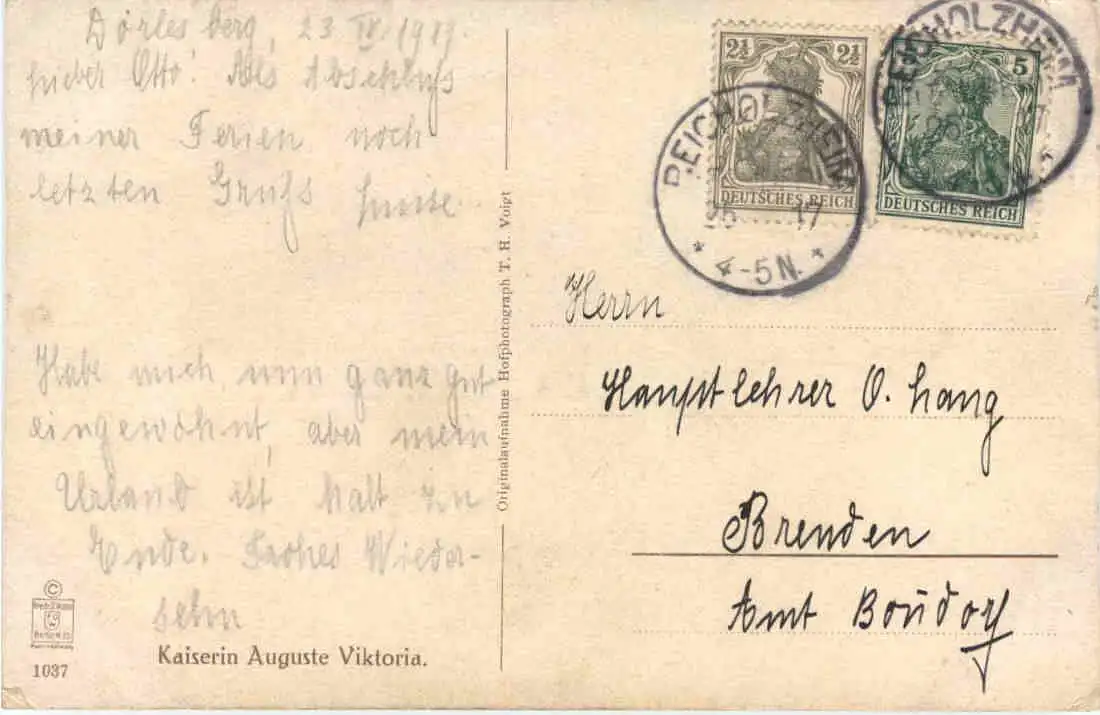 Dörlesberg, 23 IX. 1917.
Lieber Otto! Als Abschluß
meiner Ferien noch
letzten Gruß
Habe mich nun ganz gut
eingewöhnt, aber mein
Urlaub ist halt zu
Ende. Frohes Wieder-
sehn
Kaiserin Auguste Viktoria.
1037
Originalaufnahme Hofphotograph T. H. Voigt
2½ 2½
DEUTSCHES REICH
5
DEUTSCHES REICH
REICHOLZHEIM
17
* 4-5 N. *
REICHOLZHEIM
Herrn
Hauptlehrer O. Lang
Brenden
Amt Bonndorf